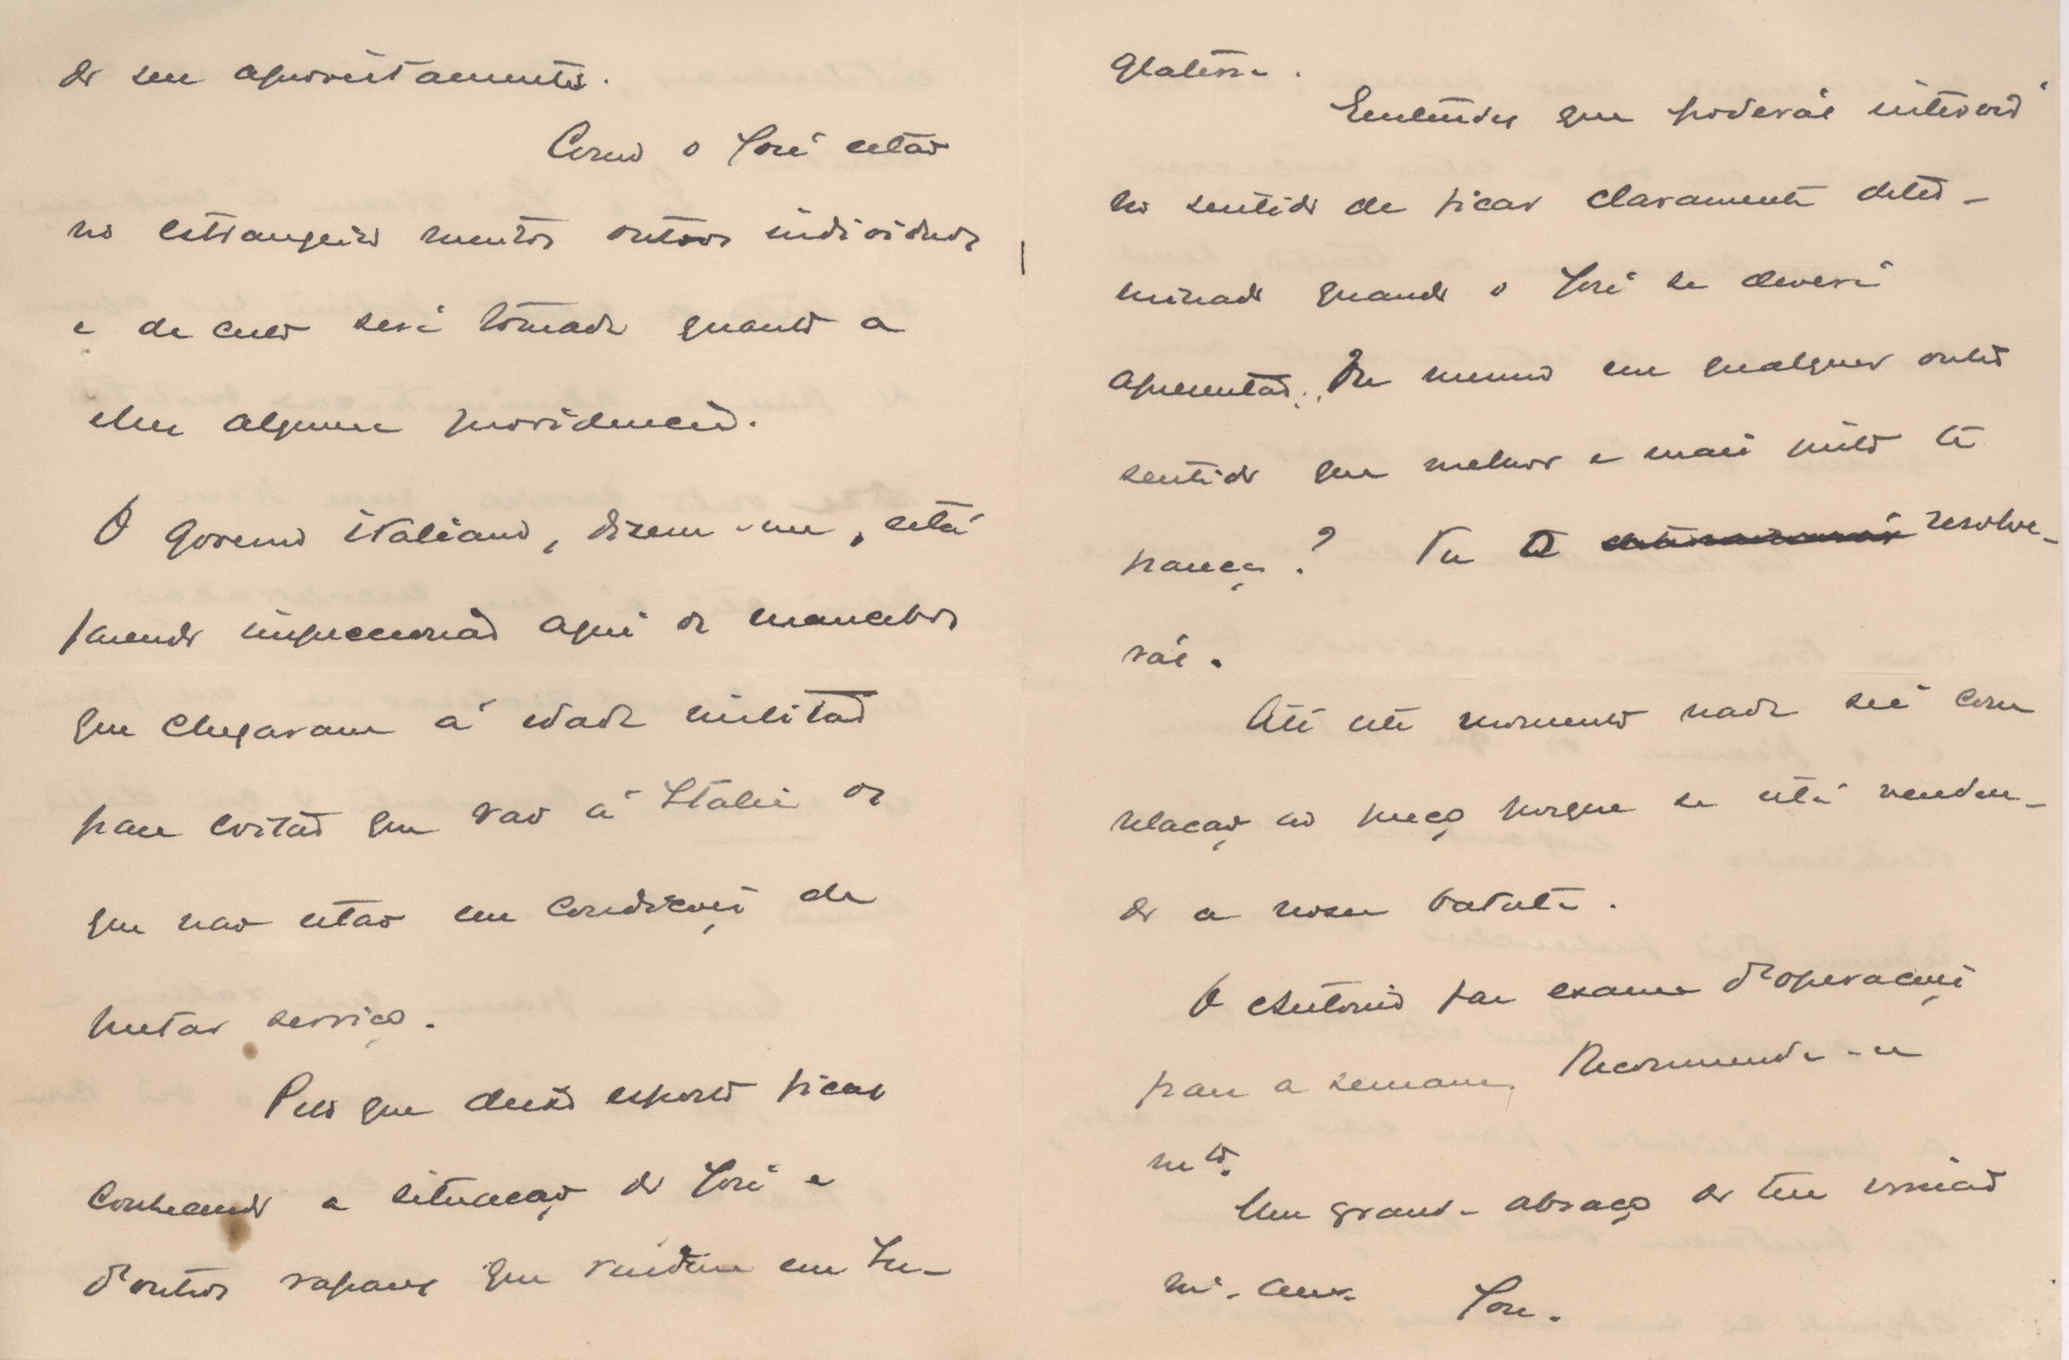 do seu aproveitamento.
Como o José estão
no estrangeiro muitos outros individuos
e de certo será tomada quanto a
eles alguma providencia.
O governo italiano, dizem-me, está
fazendo inspeccionar aqui os mancebos
que chegaram á edade militar
para evitar que vão á Italia os
que não estão em condicções de
prestar serviço.
Pelo que deixo exposto ficas
conhecendo a situação do José e
d'outros rapazes que residem em In-
glaterra.
Entendes que poderás intervir
no sentido de ficar claramente deter-
minado quando o José se deverá
apresentar. Ou mesmo em qualquer outro
sentido que melhor e mais justo te
pareça? Tu o resolve-
rás.
Até este momento nada sei com
relação ao preço porque se está venden-
do a nossa batata.
O Antonio faz exame d'operações
para a semana. Recomenda-se
mto.
Um grande abraço do teu irmão
mo. amo. José.